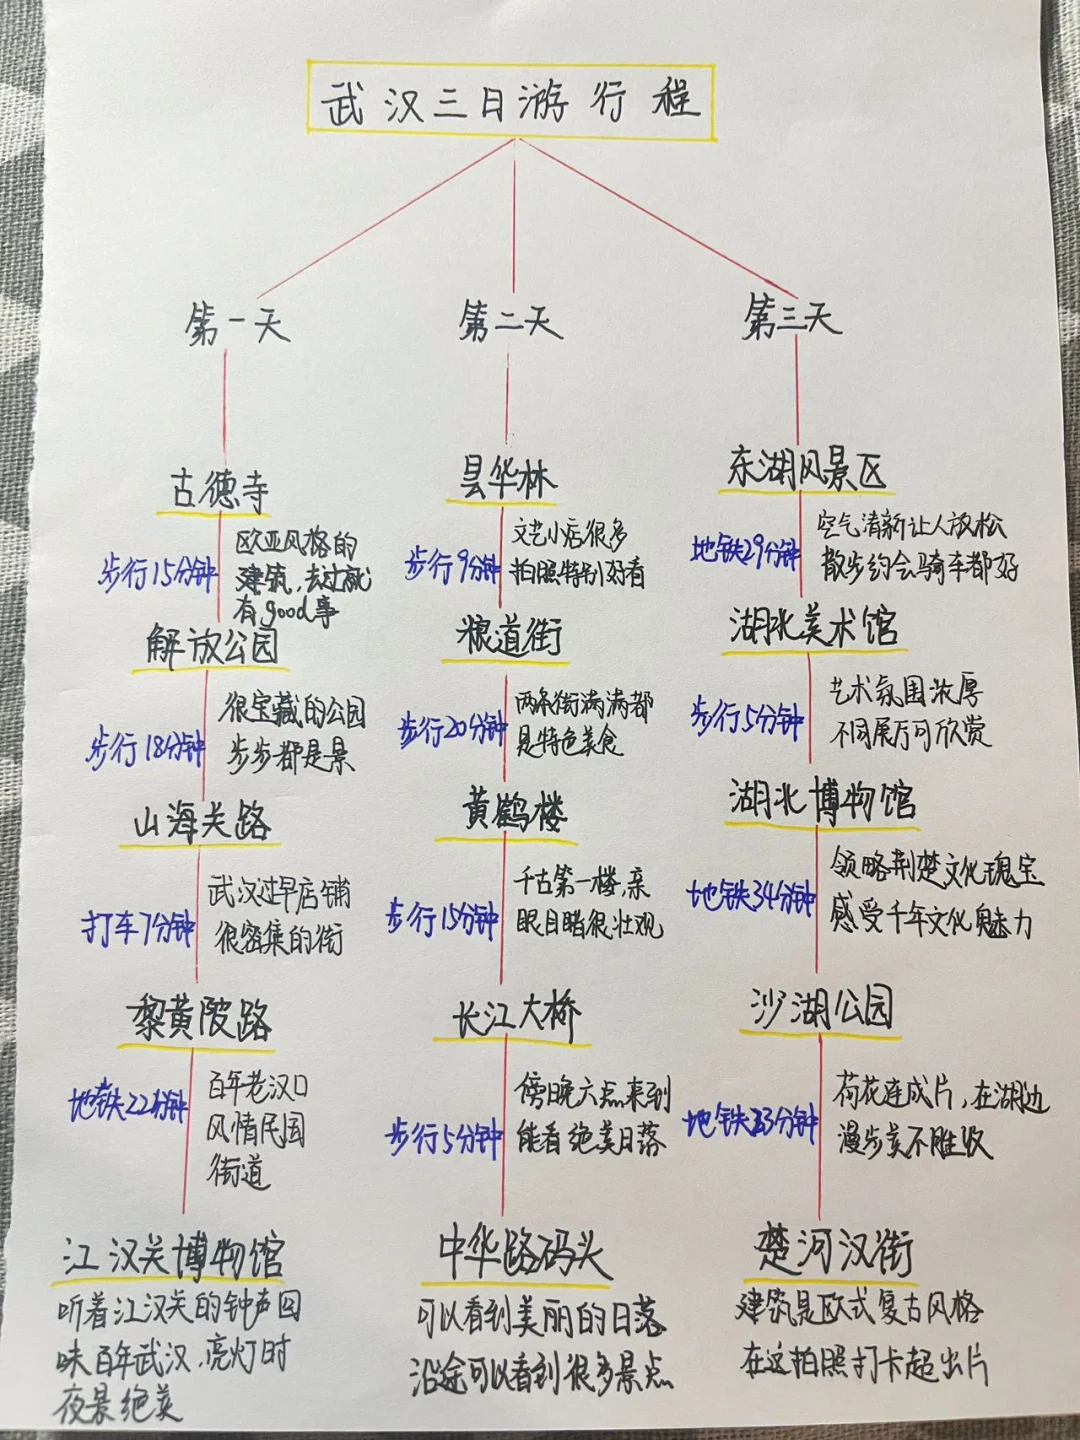 武汉三日游行程
第一天
古德寺
步行15分钟
欧亚风格的
建筑,去过就
有good事
解放公园
步行18分钟
很宝藏的公园
步步都是景
山海关路
打车7分钟
武汉过早店铺
很密集的街
黎黄陂路
地铁22分钟
百年老汉口
风情民国
街道
江汉关博物馆
听着江汉关的钟声回
味百年武汉,亮灯时
夜景绝美
第二天
昙华林
步行9分钟
文艺小店很多
拍照特别好看
粮道街
步行20分钟
两条街满满都
是特色美食
黄鹤楼
步行15分钟
千古第一楼,亲
眼目睹很壮观
长江大桥
步行5分钟
傍晚六点来到
能看绝美日落
中华路码头
可以看到美丽的日落
沿途可以看到很多景点
第三天
东湖风景区
地铁29分钟
空气清新让人放松
散步约会骑车都好
湖北美术馆
步行5分钟
艺术氛围浓厚
不同展厅可欣赏
湖北博物馆
地铁34分钟
领略荆楚文化瑰宝
感受千年文化魅力
沙湖公园
地铁33分钟
荷花连成片,在湖边
漫步美不胜收
楚河汉街
建筑是欧式复古风格
在这拍照打卡超出片